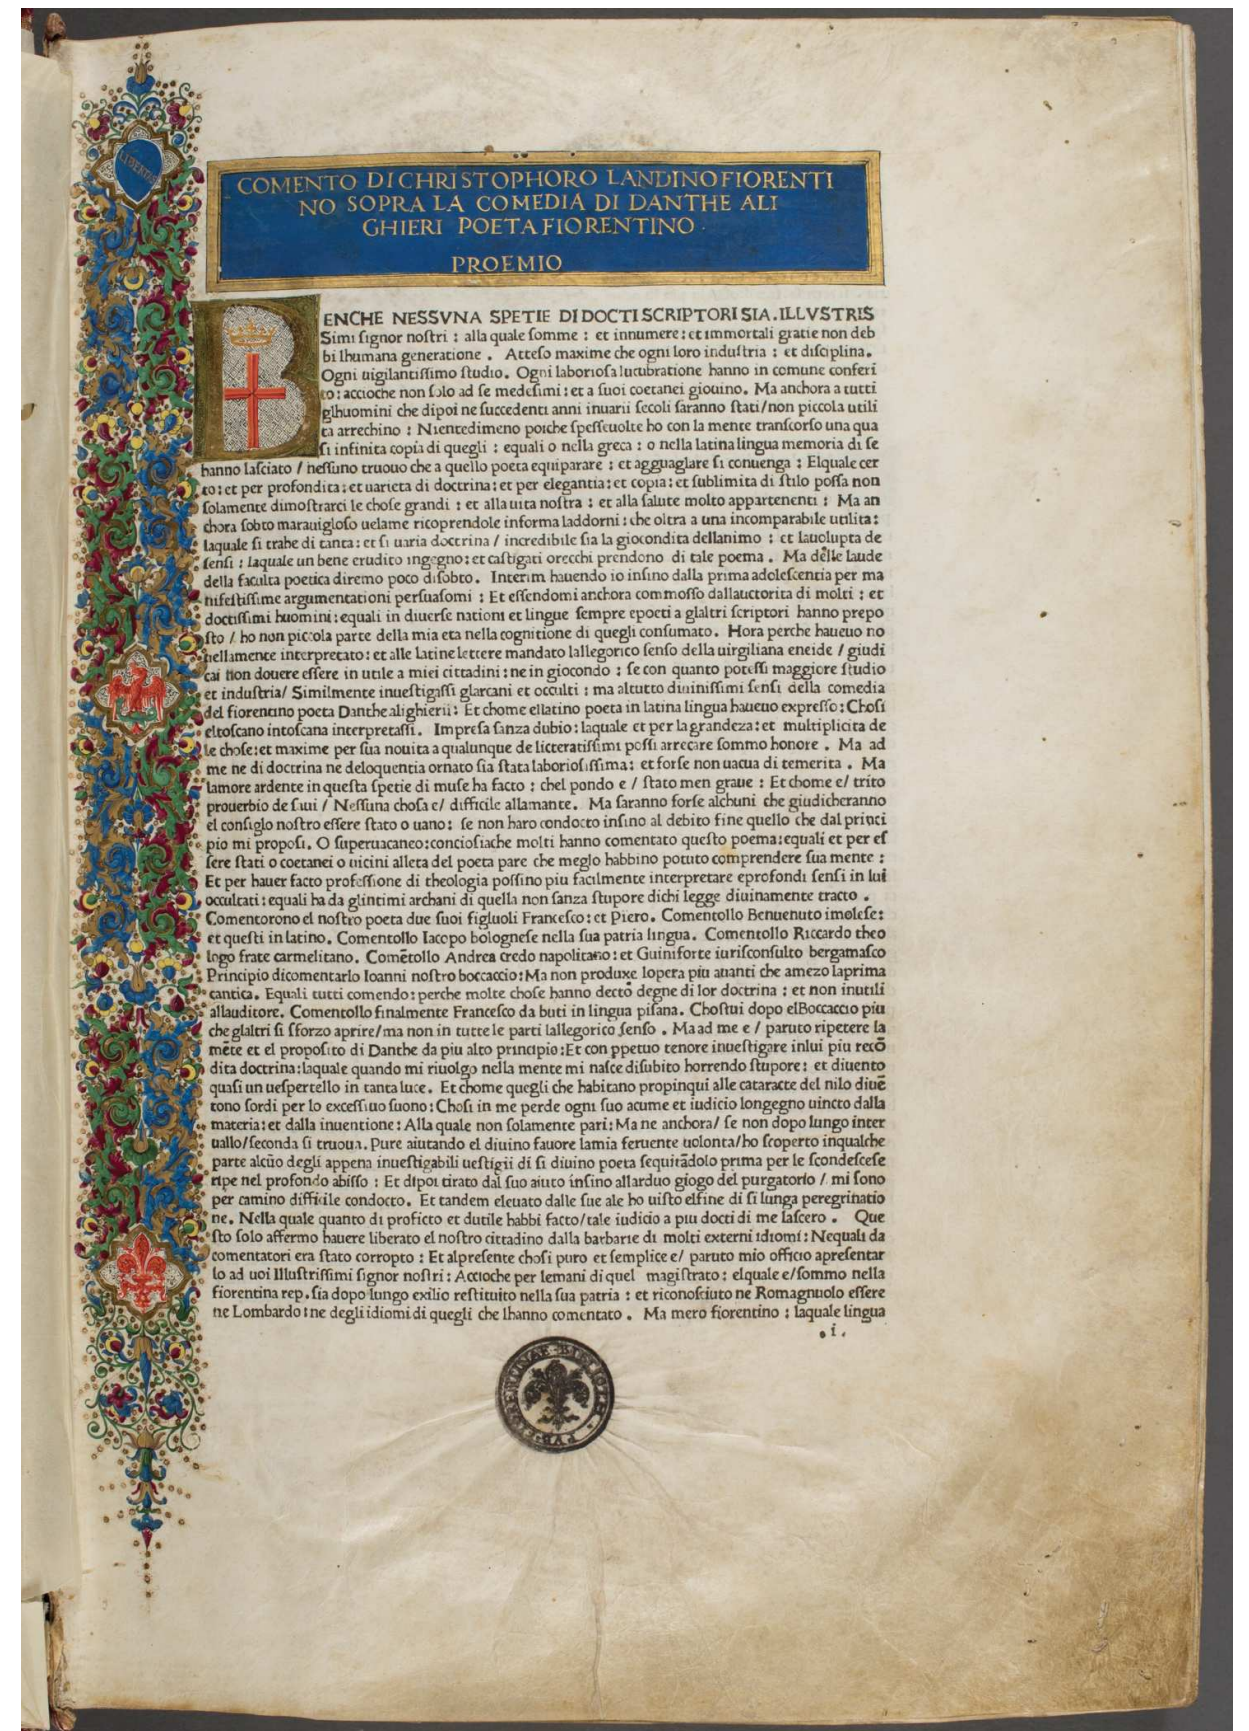 LIBERTAS
COMENTO DI CHRISTOPHORO LANDINO FIORENTI
NO SOPRA LA COMEDIA DI DANTHE ALI
GHIERI POETA FIORENTINO .
PROEMIO
BENCHE NESSVNA SPETIE DI DOCTI SCRIPTORI SIA . ILLVSTRIS
Simi ſignor noſtri : alla quale ſomme : et innumere : et immortali gratie non deb
bi lhumana generatione . Atteſo maxime che ogni loro induſtria : et diſciplina .
Ogni uigilantiſſimo ſtudio . Ogni laborioſa lucubratione hanno in comune conferi
to : accioche non ſolo ad ſe medeſimi : et a ſuoi coetanei giouino . Ma anchora a tutti
glhuomini che dipoi ne ſuccedenti anni inuarii ſecoli ſaranno ſtati / non piccola utili
ta arrechino : Nientedimeno poiche ſpeſſeuolte ho con la mente tranſcorſo una qua
ſi infinita copia di quegli : equali o nella greca : o nella latina lingua memoria di ſe
hanno laſciato / neſſuno truouo che a quello poeta equiparare : et agguaglare ſi conuenga : Elquale cer
to : et per profondita : et uarieta di doctrina : et per elegantia : et copia : et ſublimita di ſtilo poſſa non
ſolamente dimoſtrarci le choſe grandi : et alla uita noſtra : et alla ſalute molto appartenenti : Ma an
chora ſobto marauigloſo uelame ricoprendole informa laddorni : che oltra a una incomparabile utilita :
laquale ſi trahe di tanta : et ſi uaria doctrina / incredibile ſia la giocondita dellanimo : et lauolupta de
ſenſi : laquale un bene erudito ingegno : et caſtigati orecchi prendono di tale poema . Ma delle laude
della faculta poetica diremo poco diſobto . Interim hauendo io inſino dalla prima adoleſcentia per ma
nifeſtiſſime argumentationi perſuaſomi : Et eſſendomi anchora commoſſo dallauctorita di molti : et
doctiſſimi huomini : equali in diuerſe nationi et lingue ſempre epoeti a glaltri ſcriptori hanno prepo
ſto / ho non piccola parte della mia eta nella cognitione di quegli conſumato . Hora perche haueuo no
uellamente interpretato : et alle latine lettere mandato lallegorico ſenſo della uirgiliana eneide / giudi
cai non douere eſſere in utile a miei cittadini : ne in giocondo : ſe con quanto poteſſi maggiore ſtudio
et induſtria / Similmente inueſtigaſſi glarcani et occulti : ma altutto diuiniſſimi ſenſi della comedia
del fiorentino poeta Danthe alighierii : Et chome ellatino poeta in latina lingua haueuo expreſſo : Choſi
eltoſcano intoſcana interpretaſſi . Impreſa ſanza dubio : laquale et per la grandeza : et multiplicita de
le choſe : et maxime per ſua nouita a qualunque de licteratiſſimi poſſi arrecare ſommo honore . Ma ad
me ne di doctrina ne deloquentia ornato ſia ſtata laborioſiſſima : et forſe non uacua di temerita . Ma
lamore ardente in queſta ſpetie di muſe ha facto : chel pondo e / ſtato men graue : Et chome e / trito
prouerbio de ſaui / Neſſuna choſa e / difficile allamante . Ma ſaranno forſe alchuni che giudicheranno
el conſiglo noſtro eſſere ſtato o uano : ſe non haro condocto inſino al debito fine quello che dal princi
pio mi propoſi . O ſuperuacaneo : concioſiache molti hanno comentato queſto poema : equali et per eſ
ſere ſtati o coetanei o uicini alleta del poeta pare che meglo habbino potuto comprendere ſua mente :
Et per hauer facto profeſſione di theologia poſſino piu facilmente interpretare eprofondi ſenſi in lui
occultati : equali ha da glintimi archani di quella non ſanza ſtupore dichi legge diuinamente tracto .
Comentorono el noſtro poeta due ſuoi figluoli Franceſco : et Piero . Comentollo Benuenuto imoleſe :
et queſti in latino . Comentollo Iacopo bologneſe nella ſua patria lingua . Comentollo Riccardo theo
logo frate carmelitano . Comētollo Andrea credo napolitano : et Guiniforte iuriſconſulto bergamaſco
Principio dicomentarlo Ioanni noſtro boccaccio : Ma non produxe lopera piu auanti che amezo laprima
cantica . Equali tutti comendo : perche molte choſe hanno decto degne di lor doctrina : et non inutili
allauditore . Comentollo finalmente Franceſco da buti in lingua piſana . Choſtui dopo elBoccaccio piu
che glaltri ſi ſforzo aprire / ma non in tutte le parti lallegorico ſenſo . Ma ad me e / paruto ripetere la
mēte et el propoſito di Danthe da piu alto principio : Et con ppetuo tenore inueſtigare inlui piu recō
dita doctrina : laquale quando mi riuolgo nella mente mi naſce diſubito horrendo ſtupore : et diuento
quaſi un ueſpertello in tanta luce . Et chome quegli che habitano propinqui alle cataracte del nilo diuē
tono ſordi per lo exceſſiuo ſuono : Choſi in me perde ogni ſuo acume et iudicio longegno uincto dalla
materia : et dalla inuentione : Alla quale non ſolamente pari : Ma ne anchora / ſe non dopo lungo inter
uallo / ſeconda ſi truoua . Pure aiutando el diuino fauore lamia feruente uolonta / ho ſcoperto inqualche
parte alcūo degli appena inueſtigabili ueſtigii di ſi diuino poeta ſequitādolo prima per le ſcondeſceſe
ripe nel profondo abiſſo : Et dipoi tirato dal ſuo aiuto inſino allarduo giogo del purgatorio / mi ſono
per camino difficile condocto . Et tandem eleuato dalle ſue ale ho uiſto elfine di ſi lunga peregrinatio
ne . Nella quale quanto di proficto et dutile habbi facto / tale iudicio a piu docti di me laſcero . Que
ſto ſolo affermo hauere liberato el noſtro cittadino dalla barbarie di molti externi idiomi : Nequali da
comentatori era ſtato corropto : Et alpreſente choſi puro et ſemplice e / paruto mio officio apreſentar
lo ad uoi Illuſtriſſimi ſignor noſtri : Accioche per lemani di quel magiſtrato : elquale e / ſommo nella
fiorentina rep . ſia dopo lungo exilio reſtituito nella ſua patria : et riconoſciuto ne Romagnuolo eſſere
ne Lombardo : ne degli idiomi di quegli che lhanno comentato . Ma mero fiorentino : laquale lingua
. i .
PVB · FLORENTINAE · BIBLIOTH ·